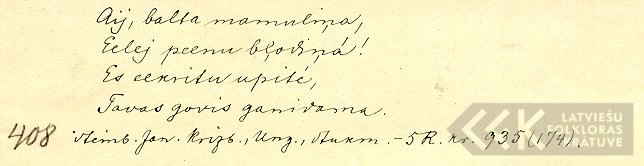 Aij, balta mamuliņa,
Eelej peenu bļodiņá!
Es eekritu upité,
Tavas govis ganidama.
408 Atmb. Jan. Krizb., Ung., Aukm. – 5 R. kr. 935 (174).
LATVIEŠU
FOLKLORAS
KRĀTUVE